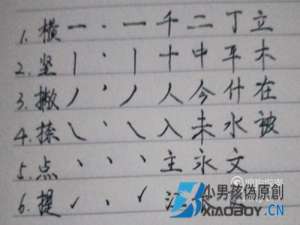 1. 横 一 丶 一 千 二 丁 立
2. 竖 丨 丶 丨 十 中 平 木
3. 撇 丿 丶 丿 人 今 什 在
4. 捺 ㇏ 丶 ㇏ 入 未 水 被
5. 点 丶 丶 丶 主 永 文
6. 提 ㇀ 丶 ㇀ 江
小男孩偽原創
XIAOBOY.CN